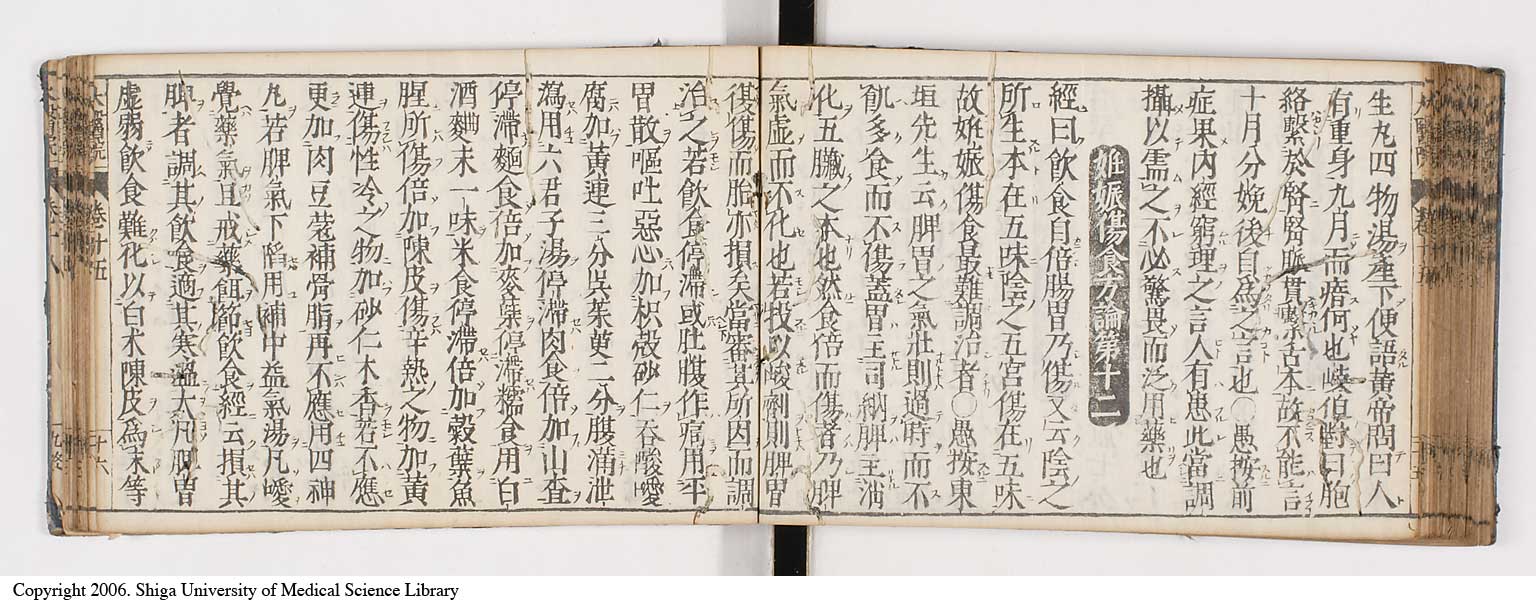 生丸四物湯產下便語黃帝問曰人
有重身九月而瘖何也岐伯對曰胞
絡繫於腎腎脈貫繫舌本故不能言
十月分娩後自爲之言也○愚按前
症果內經窮理之言人有患此當調
攝以需之不必驚畏而泛用藥也
姙娠傷食方論第十二
經曰飮食自倍腸胃乃傷又云陰之
所生本在五味陰之五宮傷在五味
故姙娠傷食最難調治者○愚按東
垣先生云脾胃之氣壯則過時而不
飢多食而不傷蓋胃主司納脾主消
化五臟之本也然食倍而傷者乃脾
氣虛而不化也若投以峻劑則脾胃
復傷而胎亦損矣當審其所因而調
治之若飮食停滯或肚腹作痛用平
胃散嘔吐惡心加枳殻砂仁吞酸噯
腐加黃連三分吳茱萸二分腹滿泄
瀉用六君子湯停滯肉食倍加山查
停滯麵食倍加麥蘗停滯糯食用白
酒麯末一味米食停滯倍加穀蘗魚
腥所傷倍加陳皮傷辛熱之物加黃
連傷性冷之物加砂仁木香若不應
更加肉豆蔻補骨脂再不應用四神
丸若脾氣下陷用補中益氣湯凡噯
覺藥氣且戒藥餌節飮食經云損其
脾者調其飮食適其寒溫大凡脾胃
虛弱飮食難化以白朮陳皮爲末等
卷廿五
十六
Copyright 2006. Shiga University of Medical Science Library